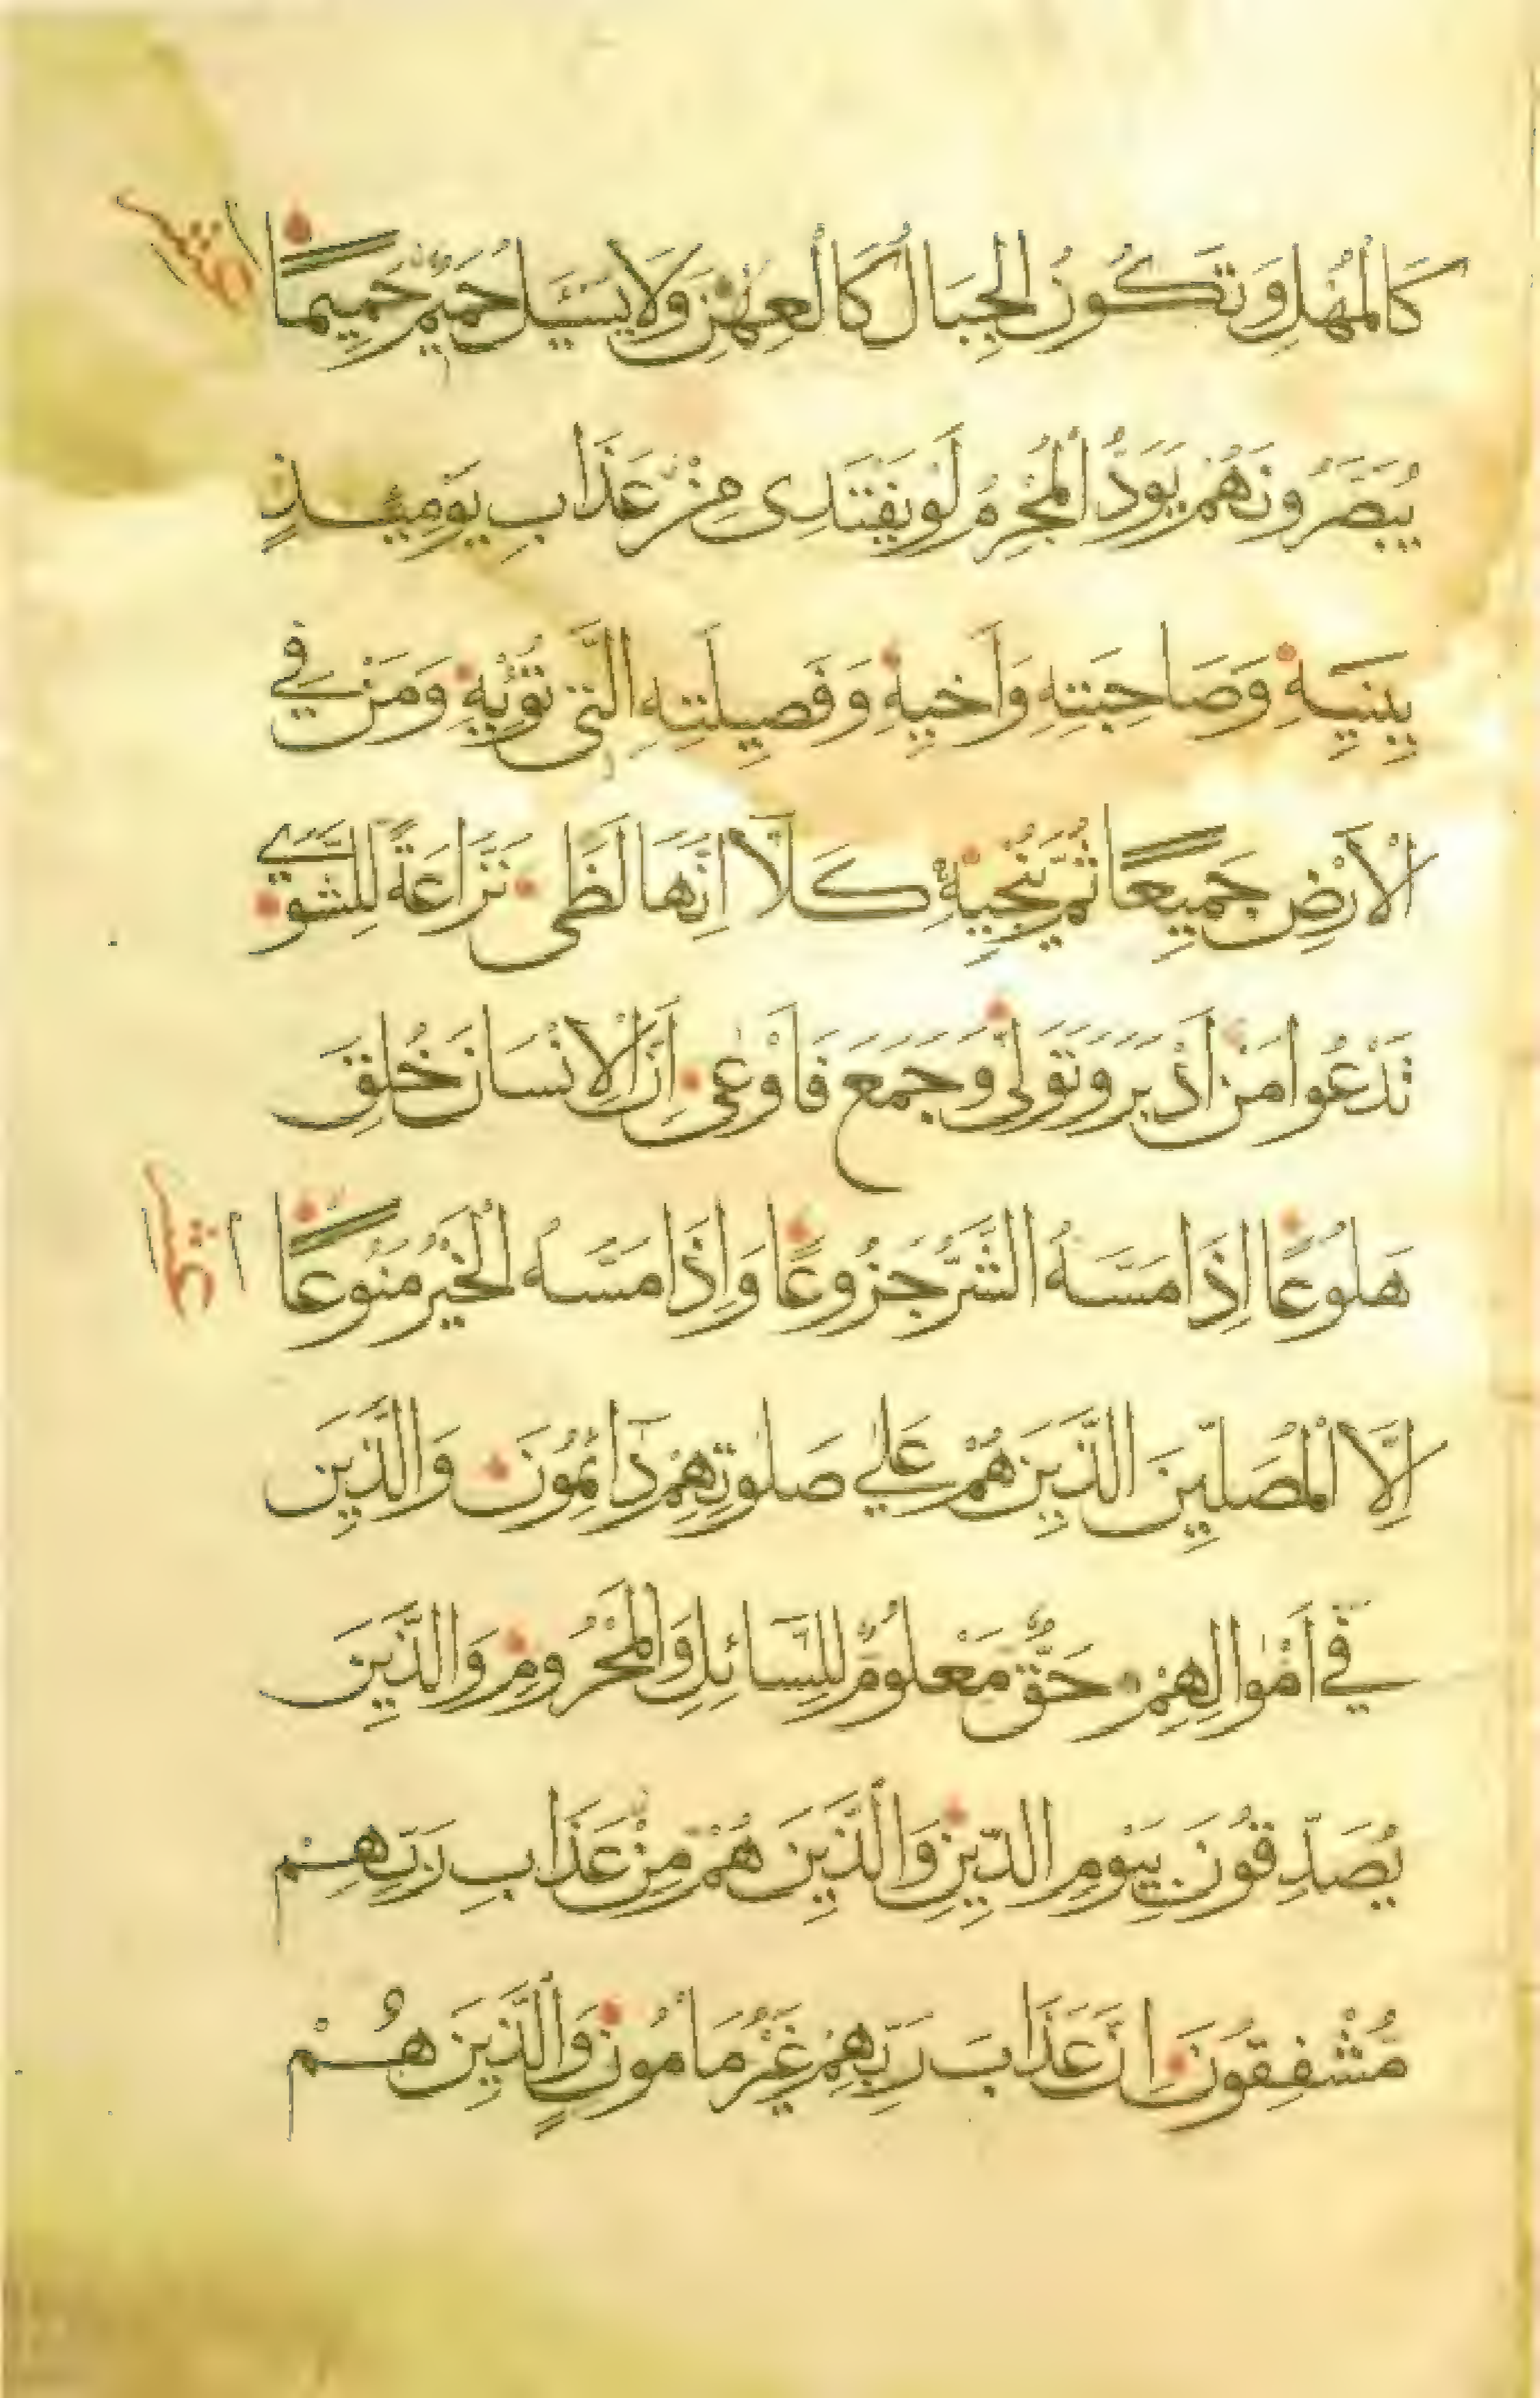 كَالْمُهْلِ وَتَكُونُ الْجِبَالُ كَالْعِهْنِ وَلَا يَسْئَلُ حَمِيمٌ حَمِيمًا
يُبَصَّرُونَهُمْ يَوَدُّ الْمُجْرِمُ لَوْ يَفْتَدِى مِنْ عَذَابِ يَوْمِيئِذٍ
بِبَنِيهِ وَصَاحِبَتِهِ وَأَخِيهِ وَفَصِيلَتِهِ الَّتِى تُؤْيِهِ وَمَنْ فِي
الْأَرْضِ جَمِيعًا ثُمَّ يُنْجِيهِ كَلَّا اِنَّهَا لَظَى نَزَّاعَةً لِلشَّوَى
تَدْعُوا مَنْ أَدْبَرَ وَتَوَلَّى وَجَمَعَ فَأَوْعٰى اِنَّ الْاِنْسَانَ خُلِقَ
هَلُوعًا اِذَا مَسَّهُ الشَّرُّ جَزُوعًا وَاِذَا مَسَّهُ الْخَيْرُ مَنُوعًا
اِلَّا الْمُصَلِّينَ الَّذِينَ هُمْ عَلٰي صَلٰوتِهِمْ دَائِمُونَ وَالَّذِينَ
فِي أَمْوٰالِهِمْ حَقٌّ مَعْلُومٌ لِلسَّائِلِ وَالْمَحْرُومِ وَالَّذِينَ
يُصَدِّقُونَ بِيَوْمِ الدِّينِ وَالَّذِينَ هُمْ مِنْ عَذَابِ رَبِّهِمْ
مُشْفِقُونَ اِنَّ عَذَابَ رَبِّهِمْ غَيْرُ مَأْمُونٍ وَالَّذِينَ هُمْ